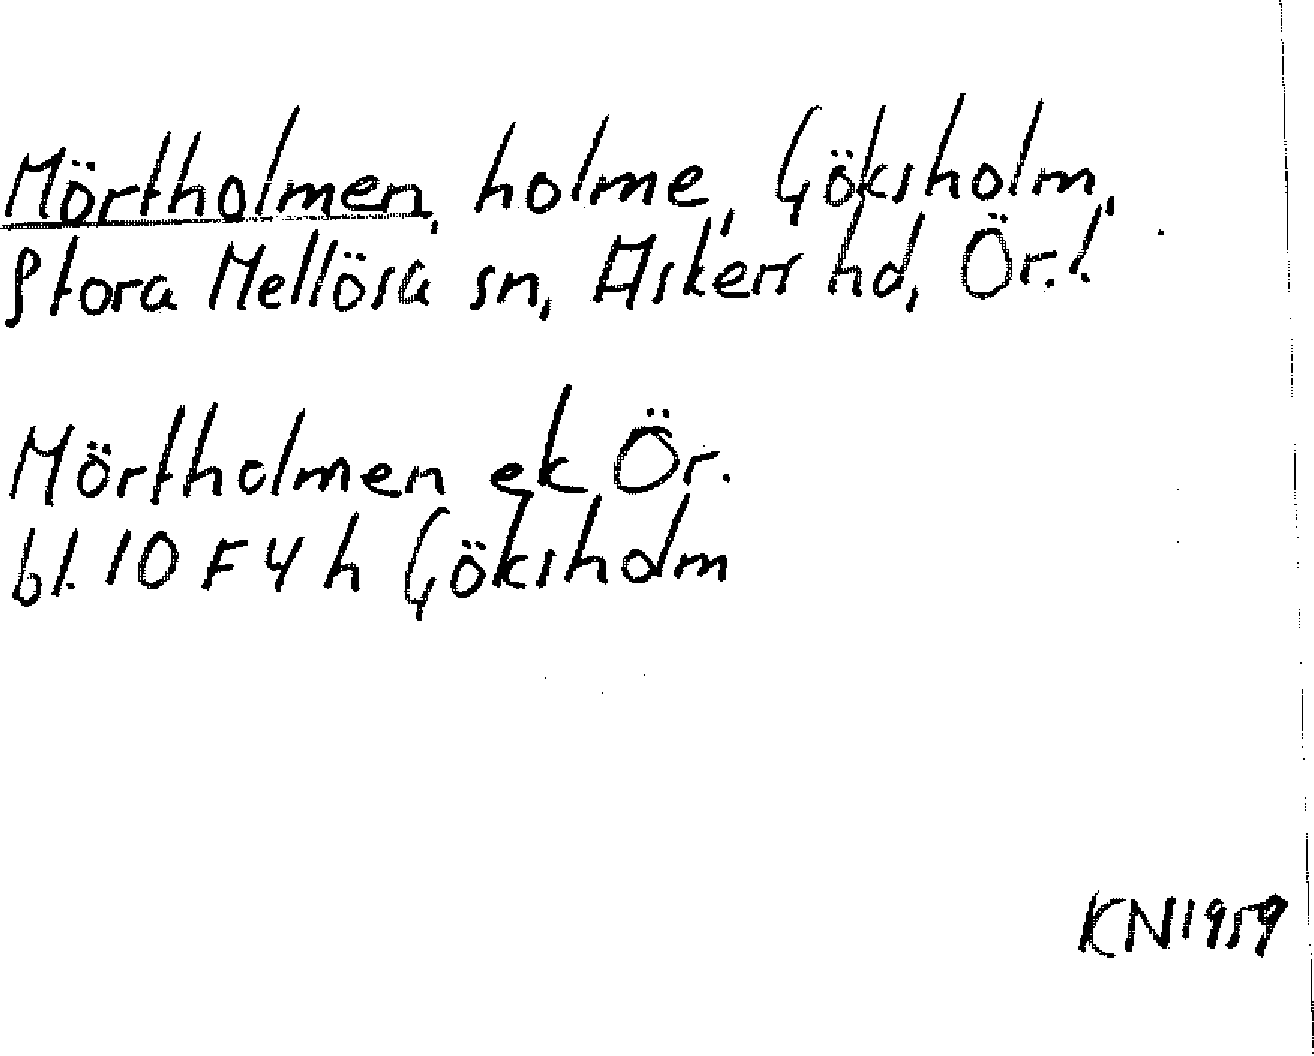 Mörtholmen, holme, Göksholm,
Stora Mellösa sn, Askers hd, Ör.l.
Mörtholmen ek Ör.
bl. 10 F 4 h Göksholm
KN1959